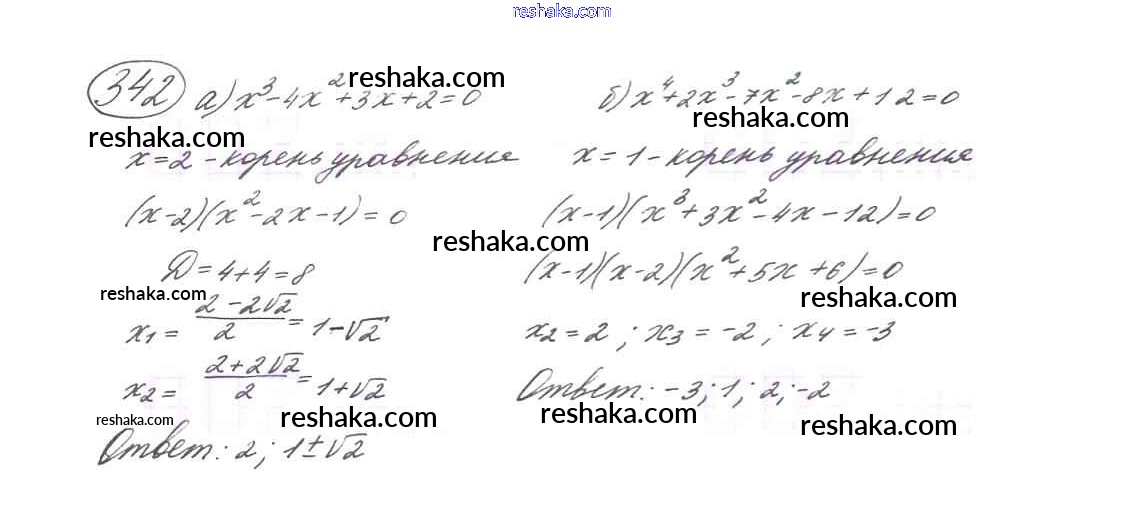 reshaka.com
342 а) x³-4x²+3x+2=0
reshaka.com
reshaka.com
x=2 - корень уравнения
(x-2)(x²-2x-1)=0
D=4+4=8
reshaka.com
x₁ = (2-2√2)/2 = 1-√2
x₂ = (2+2√2)/2 = 1+√2
reshaka.com
reshaka.com
Ответ: 2; 1±√2
б) x⁴+2x³-7x²-8x+12=0
reshaka.com
x=1 - корень уравнения
(x-1)(x³+3x²-4x-12)=0
reshaka.com
(x-1)(x-2)(x²+5x+6)=0
reshaka.com
x₂=2; x₃=-2; x₄=-3
Ответ: -3; 1; 2; -2
reshaka.com
reshaka.com
reshaka.com